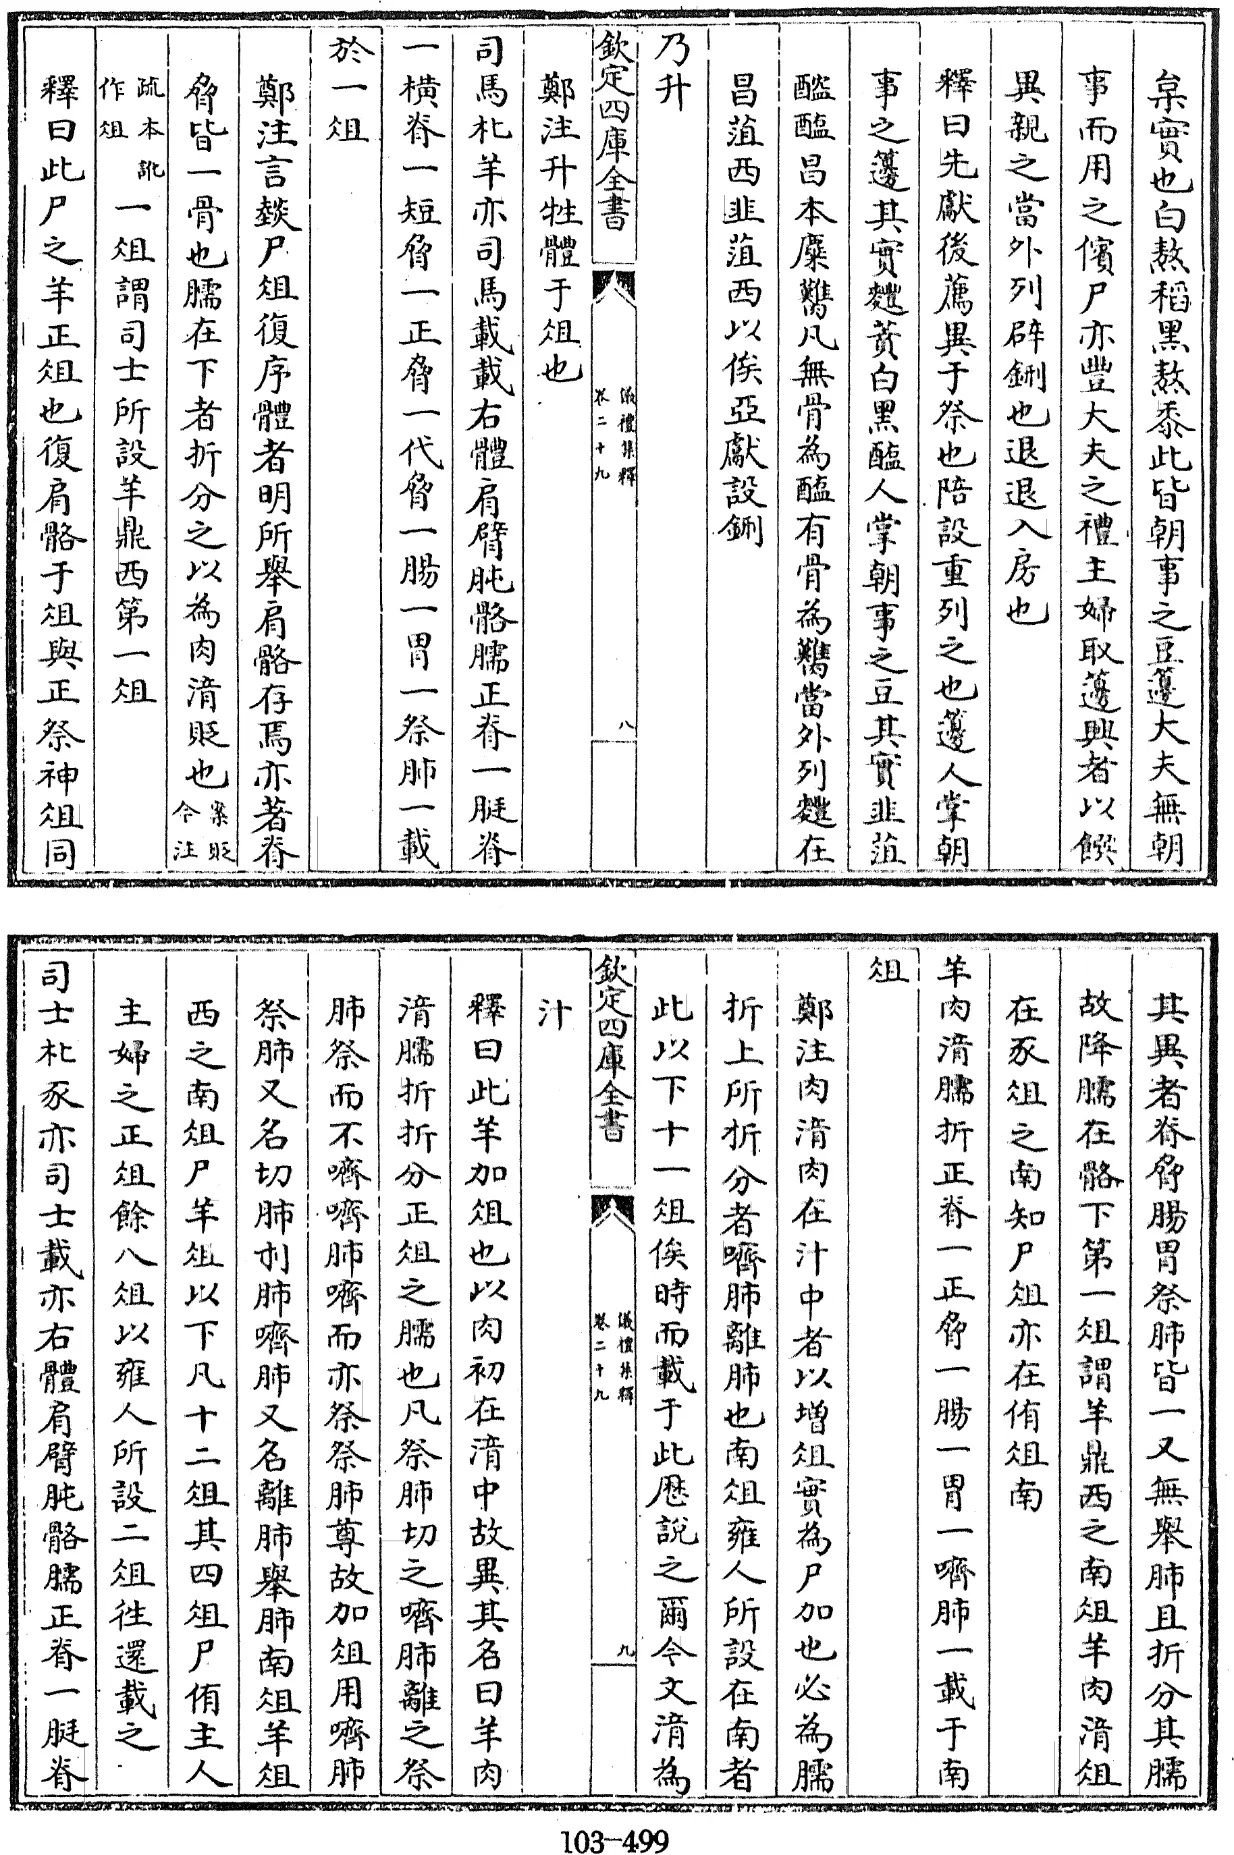 枲實也白熬稻黒熬黍此皆朝事之豆籩大夫無朝
事而用之儐尸亦豐大夫之禮主婦取籩興者以饌
異親之當外列辟鉶也退退入房也
釋曰先獻後薦異于祭也陪設重列之也籩人掌朝
事之籩其實麷蕡白黒醢人掌朝事之豆其實韭菹
醓醢昌本麋臡凡無骨為醢有骨為臡當外列麷在
昌菹西韭菹西以俟亞獻設鉶
乃升
欽定四庫全書
儀禮集釋
卷二十九
八
鄭注升牲體于俎也
司馬朼羊亦司馬載載右體肩臂肫骼臑正脊一脡脊
一橫脊一短脅一正脅一代脅一腸一胃一祭肺一載
於一俎
鄭注言燅尸俎復序體者明所舉肩骼存焉亦著脊
脅皆一骨也臑在下者折分之以為肉湆貶也案貶今注
疏本訛作俎一俎謂司士所設羊鼎西第一俎
釋曰此尸之羊正俎也復肩骼于俎與正祭神俎同
其異者脊脅腸胃祭肺皆一又無舉肺且折分其臑
故降臑在骼下第一俎謂羊鼎西之南俎羊肉湆俎
在豕俎之南知尸俎亦在侑俎南
羊肉湆臑折正脊一正脅一腸一胃一嚌肺一載于南
俎
鄭注肉湆肉在汁中者以増俎實為尸加也必為臑
折上所折分者嚌肺離肺也南俎雍人所設在南者
此以下十一俎俟時而載于此歴説之爾今文湆為
欽定四庫全書
儀禮集釋
卷二十九
九
汁
釋曰此羊加俎也以肉初在湆中故異其名曰羊肉
湆臑折折分正俎之臑也凡祭肺切之嚌肺離之祭
肺祭而不嚌嚌肺嚌而亦祭祭肺尊故加俎用嚌肺
祭肺又名切肺刌肺嚌肺又名離肺舉肺南俎羊俎
西之南俎尸羊俎以下凡十二俎其四俎尸侑主人
主婦之正俎餘八俎以雍人所設二俎徃還載之
司士朼豕亦司士載亦右體肩臂肫骼臑正脊一脡脊
103-499